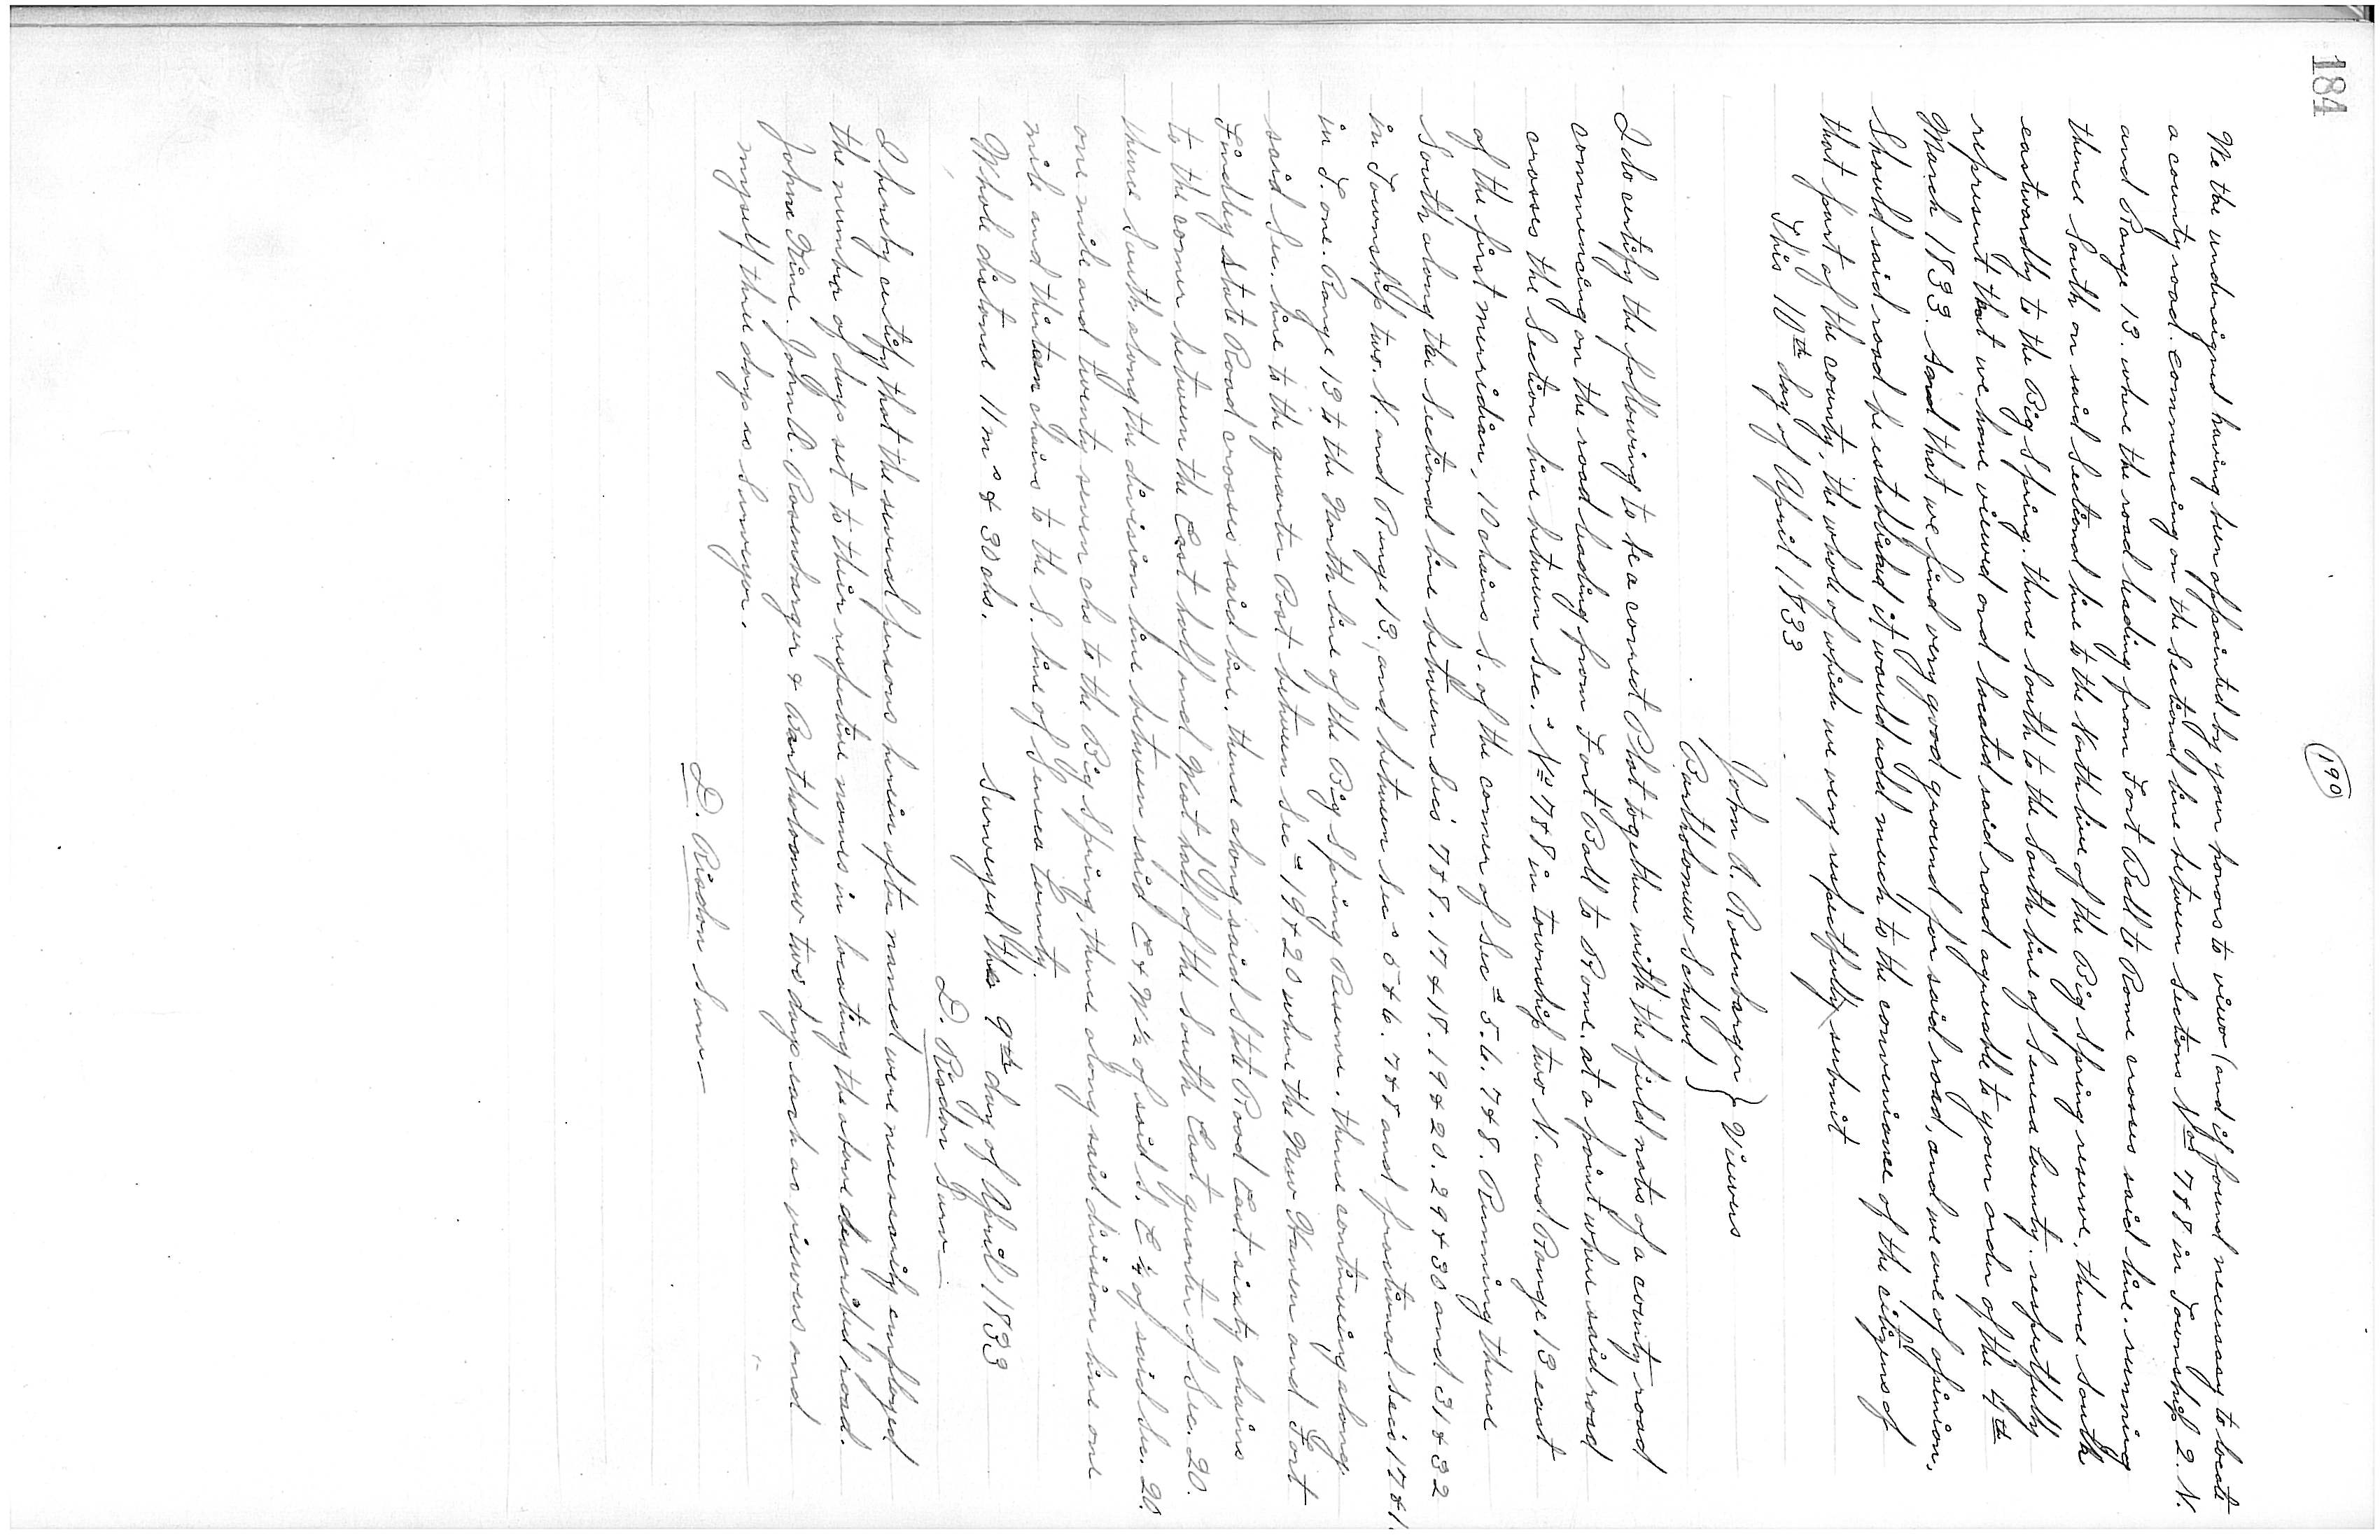 184
190
We the undersigned having been appointed by your honors to view (and if found necessary to locate
a county road. Commencing on the sectional line between Sections Nos 7 & 8 in Township 2. N.
and Range 13. where the road leading from Fort Ball to Rome crosses said line. running
thence South on said Sectional line to the North line of the Big Spring reserve. thence South
eastwardly to the Big Spring. thence South to the South line of Seneca County. respectfully
represent that we have viewed and located said road agreeable to your order of the 4th
March 1833. And that we find very good ground for said road, and we are of opinion,
Should said road be established it would add much to the convenience of the citizens of
that part of the county, the whole of which we very respectfully submit
This 10th day of April 1833
John A. Rosenbarger } Viewers
Bartholomew Schawl }
I do certify the following to be a correct Plat together with the field nots of a county road
commencing on the road leading from Fort Ball to Rome. at a point where said road
crosses the Section line between Sec.s Nos 7 & 8 in township two N. and Range 13 east
of the first meridian, 10 chains S. of the corner of Secs 5. 6. 7 & 8. Running thence
South along the Sectional line between Secs 7 & 8. 17 & 18. 19 & 20. 29 & 30 and 31 & 32
in Township two. N. and Range 13, and between Secs 5 & 6. 7 & 8 and fractional Secs 17 & 1
in T. one. Range 13 to the North line of the Big Spring Reserve. thence continuing along
said Sec. line to the quarter Post between Secs 19 & 20 where the New Haven and Fort
Findley State Road crosses said line. thence along said State Road East sixty chains
to the corner between the East half and West half of the South East quarter of Sec. 20.
thence South along the division line between said E & W ½ of said S. E ¼ of said Sec. 20.
one mile and twenty seven chs to the Big Spring, thence along said division line one
mile and thirteen chains to the S. line of Seneca County.
Whole distance 11 ms & 30 chs. Surveyed this 9th day of April 1833
D. Risdon Surv
I hereby certify that the several persons herein after named were necessarily employed
the number of days set to their respective names in locating the above described road.
John A. Rosenbarger & Bartholomew two days each as viewers and
myself three days as Surveyor.
D. Risdon Surv